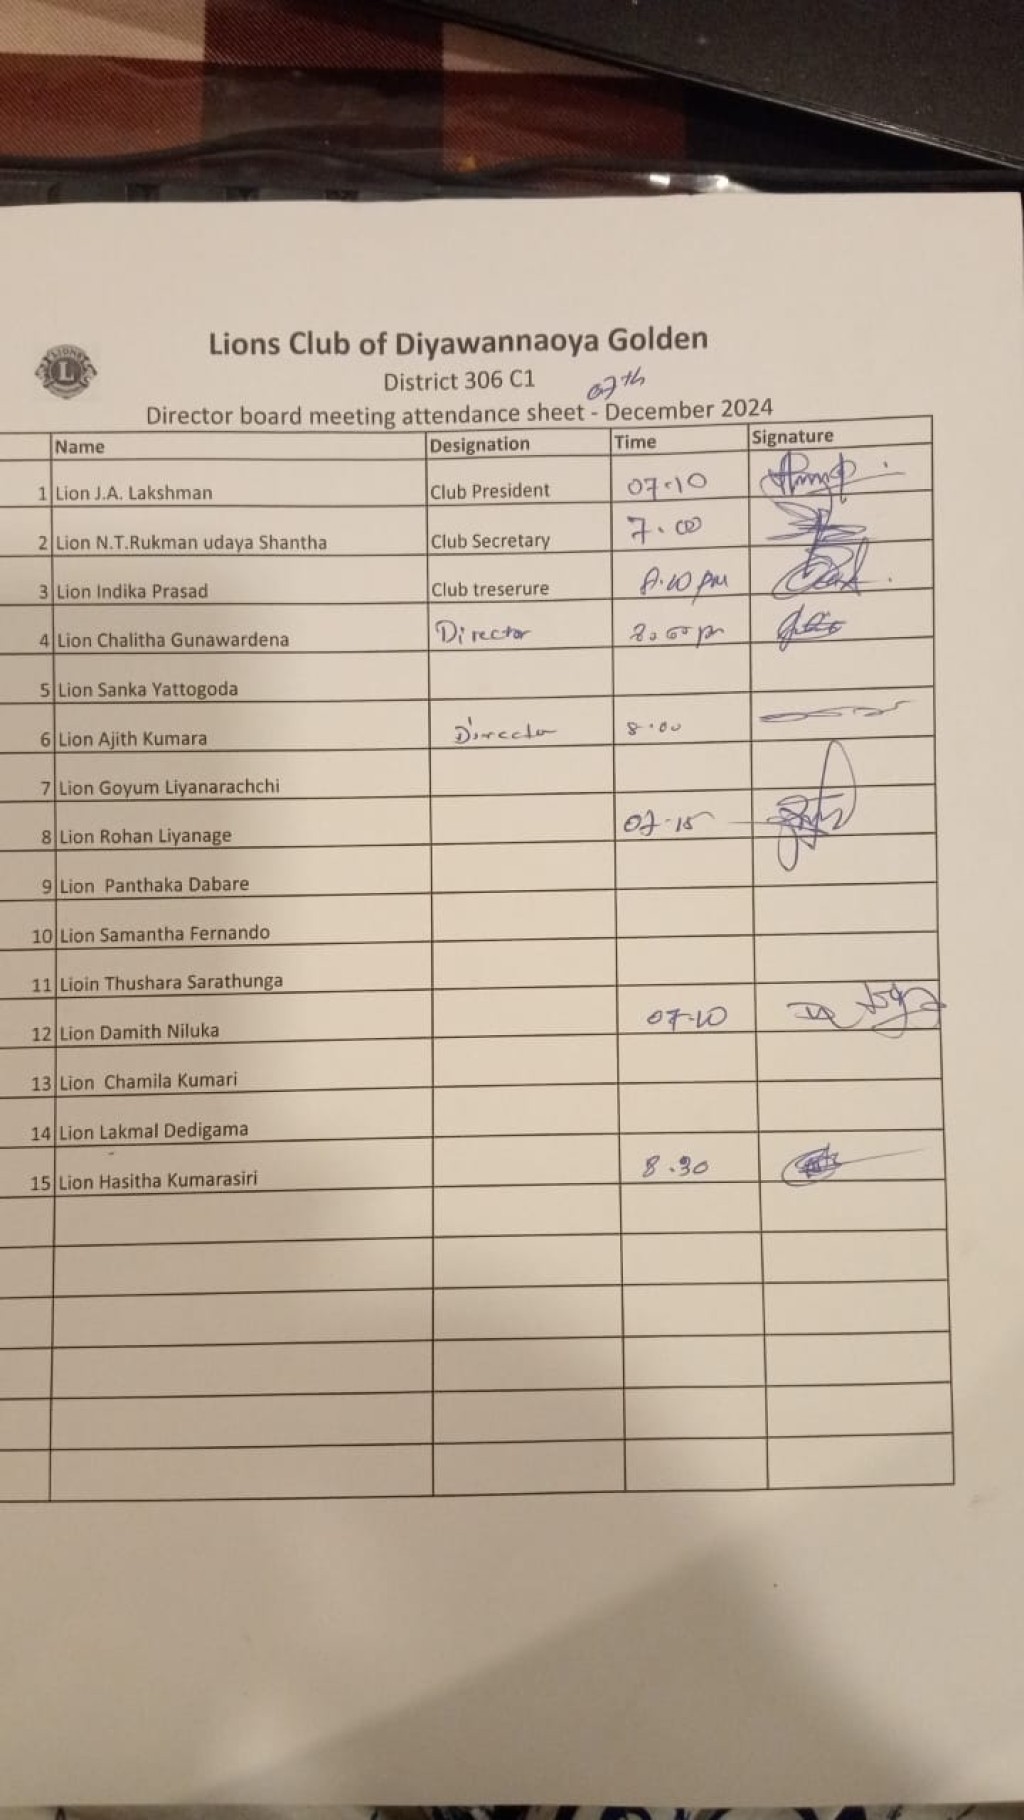 Lions Club of Diyawannaoya Golden
LIONS
L
District 306 C1
07th
Director board meeting attendance sheet - December 2024
Name Designation Time Signature
1 Lion J.A. Lakshman Club President 07-10
2 Lion N.T.Rukman udaya Shantha Club Secretary 7.00
3 Lion Indika Prasad Club treserure 8.10 pm
4 Lion Chalitha Gunawardena Director
5 Lion Sanka Yattogoda
6 Lion Ajith Kumara Director 8.00
7 Lion Goyum Liyanarachchi
8 Lion Rohan Liyanage 07-15
9 Lion Panthaka Dabare
10 Lion Samantha Fernando
11 Lioin Thushara Sarathunga
12 Lion Damith Niluka 07-10
13 Lion Chamila Kumari
14 Lion Lakmal Dedigama
15 Lion Hasitha Kumarasiri 8.30